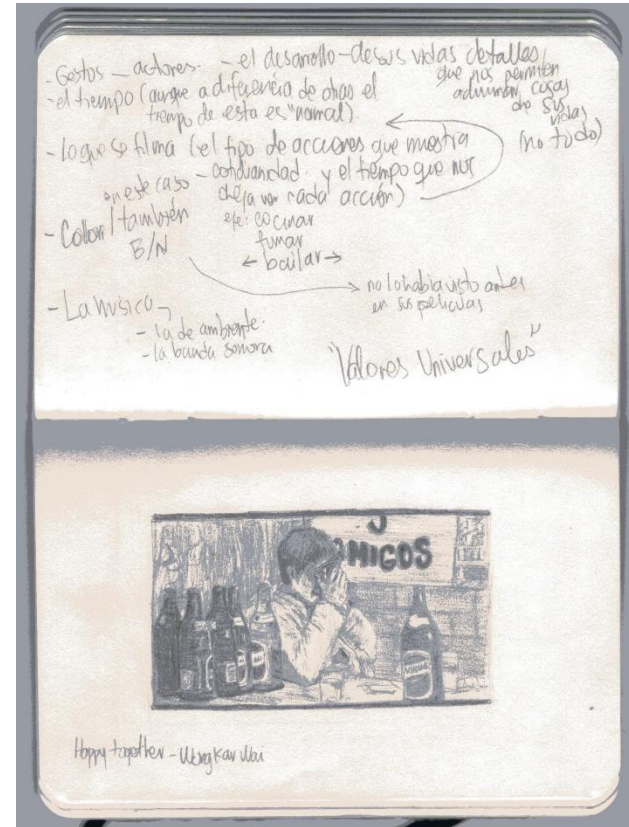 - Gestos — actores. - el desarrollo - de sus vidas detalles
que nos permiten
adivinar cosas
de sus
vidas
(no todo)
- el tiempo (aunque a diferencia de otras el
tiempo de esta es "normal")
- lo que se filma (el tipo de acciones que muestra
- cotidianidad. y el tiempo que nos
deja ver cada acción)
eje: cocinar
fumar
← bailar →
en este caso
- Color / también
B/N
no lo había visto antes
en sus películas
- La música
- la de ambiente.
- la banda sonora
"Valores Universales"
AMIGOS
Happy together - Wong Kar Wai